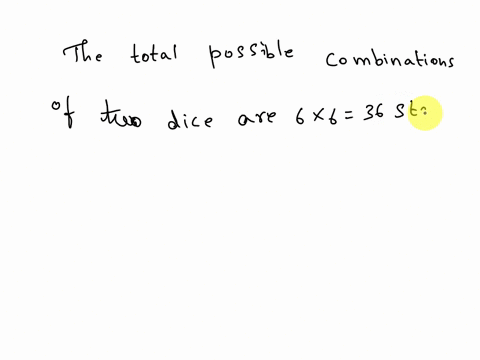 The total possible combinations
of two dice are 6 × 6 = 36 st